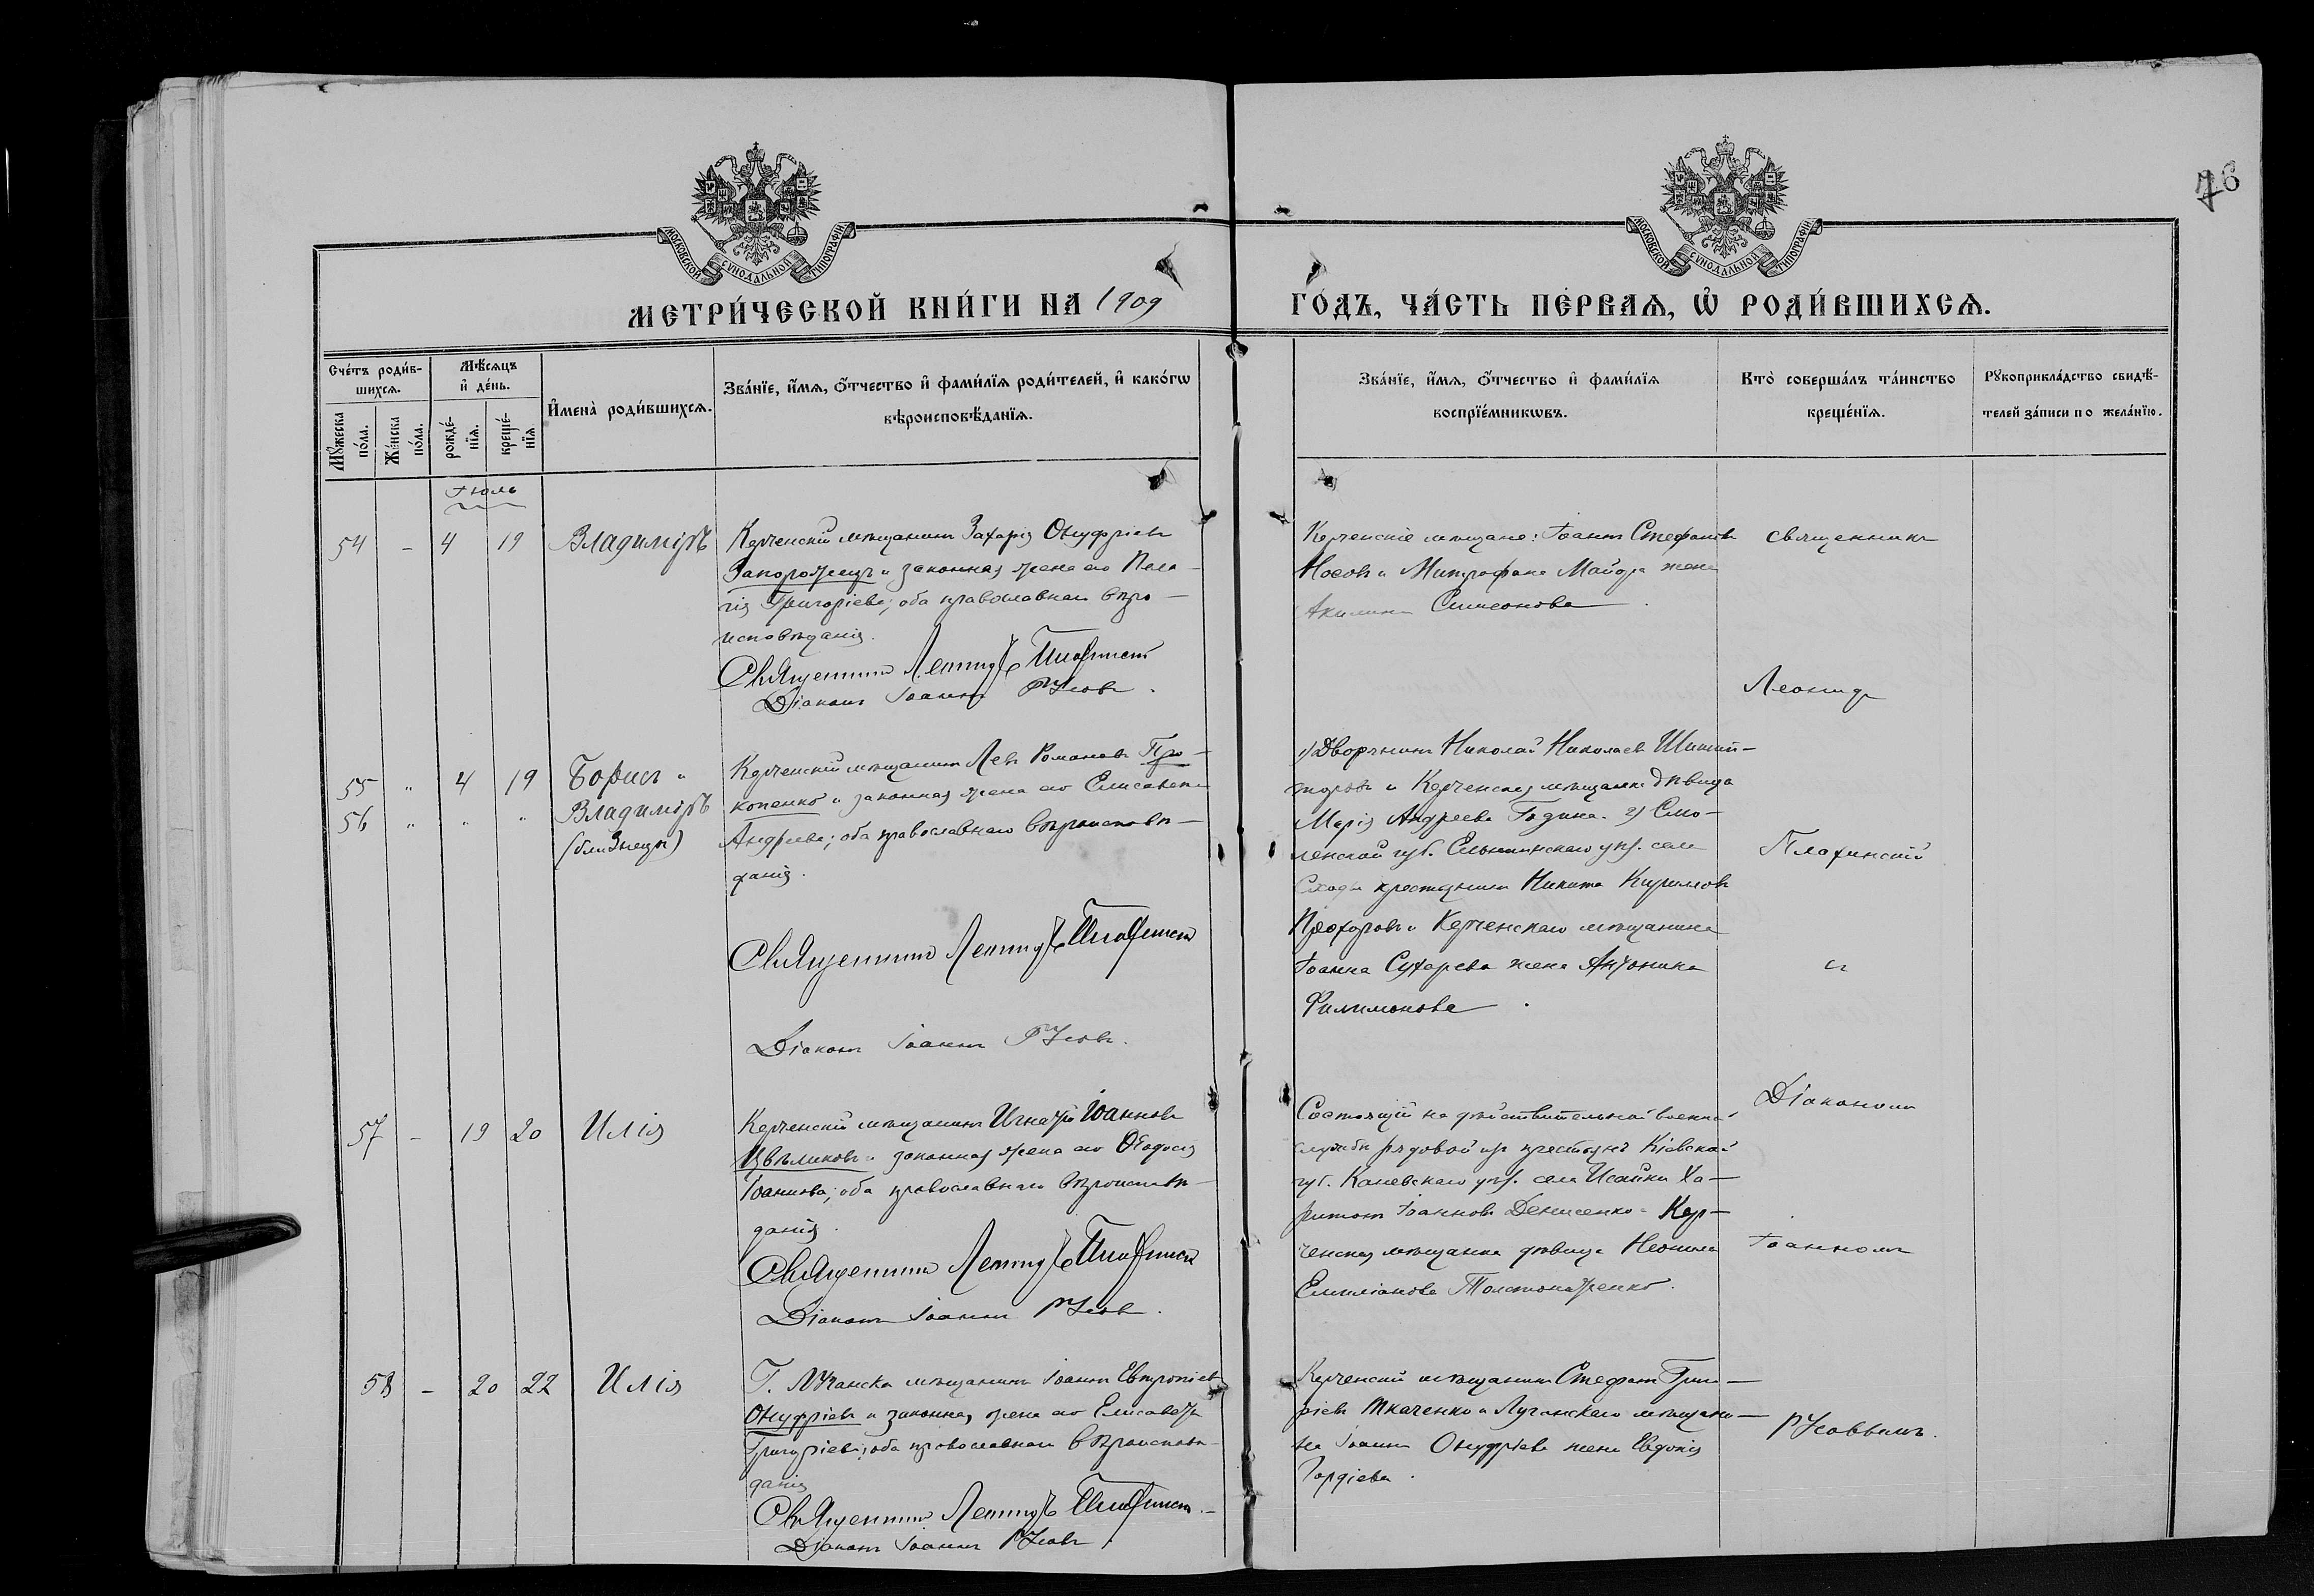 76
МОСКОВСКОЙ СѴНОДАЛЬНОЙ ТИПОГРАФІИ
МОСКОВСКОЙ СѴНОДАЛЬНОЙ ТИПОГРАФІИ
МЕТРИ́ЧЕСКОЙ КНИ́ГИ НА 1909
ГО́ДЪ, ЧА́СТЬ ПЕ́РВАЯ, Ѽ РОДИ́ВШИХСЯ.
Сче́тъ роди́в-
шихсѧ.
Мꙋ́жеска по́ла.
Же́нска по́ла.
Мѣ́сѧцъ
и҆ де́нь.
рожде́-
нїѧ.
креще́-
нїѧ
И҆мена̀ роди́вшихсѧ.
Зва́нїе, и҆́мѧ, ѻ҆́тчество и҆ фами́лїѧ роди́телей, и҆ како́гѡ
вѣроисповѣ́данїѧ.
Зва́нїе, и҆́мѧ, ѻ҆́тчество и҆ фами́лїѧ
воспрїе́мникѡвъ.
Кто̀ соверша́лъ та́инство
креще́нїѧ.
Рꙋкоприкла́дство свидѣ́-
телей за́писи по жела́нїю.
Іюль
54 - 4 19 Владиміръ
Керченскій мѣщанинъ Захарія Онуфріевъ
Запорожецъ и законная жена его Пела-
гія Григоріева; оба православнаго вѣро-
исповѣданія.
Священникъ Леонидъ Плафинскій
Діаконъ Іоаннъ Русовъ.
Керченскіе мѣщане: Іоаннъ Стефановъ
Носовъ и Митрофана Майора жена
Акилина Симеонова.
55 " 4 19 Борисъ и
56 " " " Владиміръ
(близнецы)
Керченскій мѣщанинъ Левъ Романовъ Про-
копенко и законная жена его Елисавета
Андреева; оба православнаго вѣроисповѣ-
данія.
Священникъ Леонидъ Плафинскій
Діаконъ Іоаннъ Русовъ.
1) Дворянинъ Николай Николаевъ
и Керченская мѣщанка дѣвица
Марія Андреева Година. 2) Смо-
ленской губ. Ельнинскаго уѣз. села
крестьянинъ Никита Кирилловъ
Прохоровъ и Керченскаго мѣщанина
Іоанна Сухарева жена
Филимонова.
57 - 19 20 Илія
Керченскій мѣщанинъ Игнатій Іоанновъ
Цвѣликовъ и законная жена его Ѳеодосія
Іоаннова; оба православнаго вѣроисповѣ-
данія.
Священникъ Леонидъ Плафинскій
Діаконъ Іоаннъ Русовъ.
Состоящій на дѣйствительной военной
службѣ рядовой изъ крестьянъ Кіевской
губ. Каневскаго уѣз. села Исайки Ха-
ритонъ Іоанновъ Денисенко и Кер-
ченская мѣщанка дѣвица Неонила
Емиліанова
58 - 20 22 Илія
Г. Луганска мѣщанинъ Іоаннъ Евтропіевъ
Онуфріевъ и законная жена его Елисавета
Григоріева; оба православнаго вѣроисповѣ-
данія
Священникъ Леонидъ Плафинскій.
Діаконъ Іоаннъ Русовъ.
Керченскій мѣщанинъ Стефанъ Григо-
ріевъ Ткаченко и Луганскаго мѣщани-
на Іоанна Онуфріева жена Евдокія
Гордіева.
Священникъ
Леонидъ
Плафинскій
съ
Діакономъ
Іоанномъ
Русовымъ.